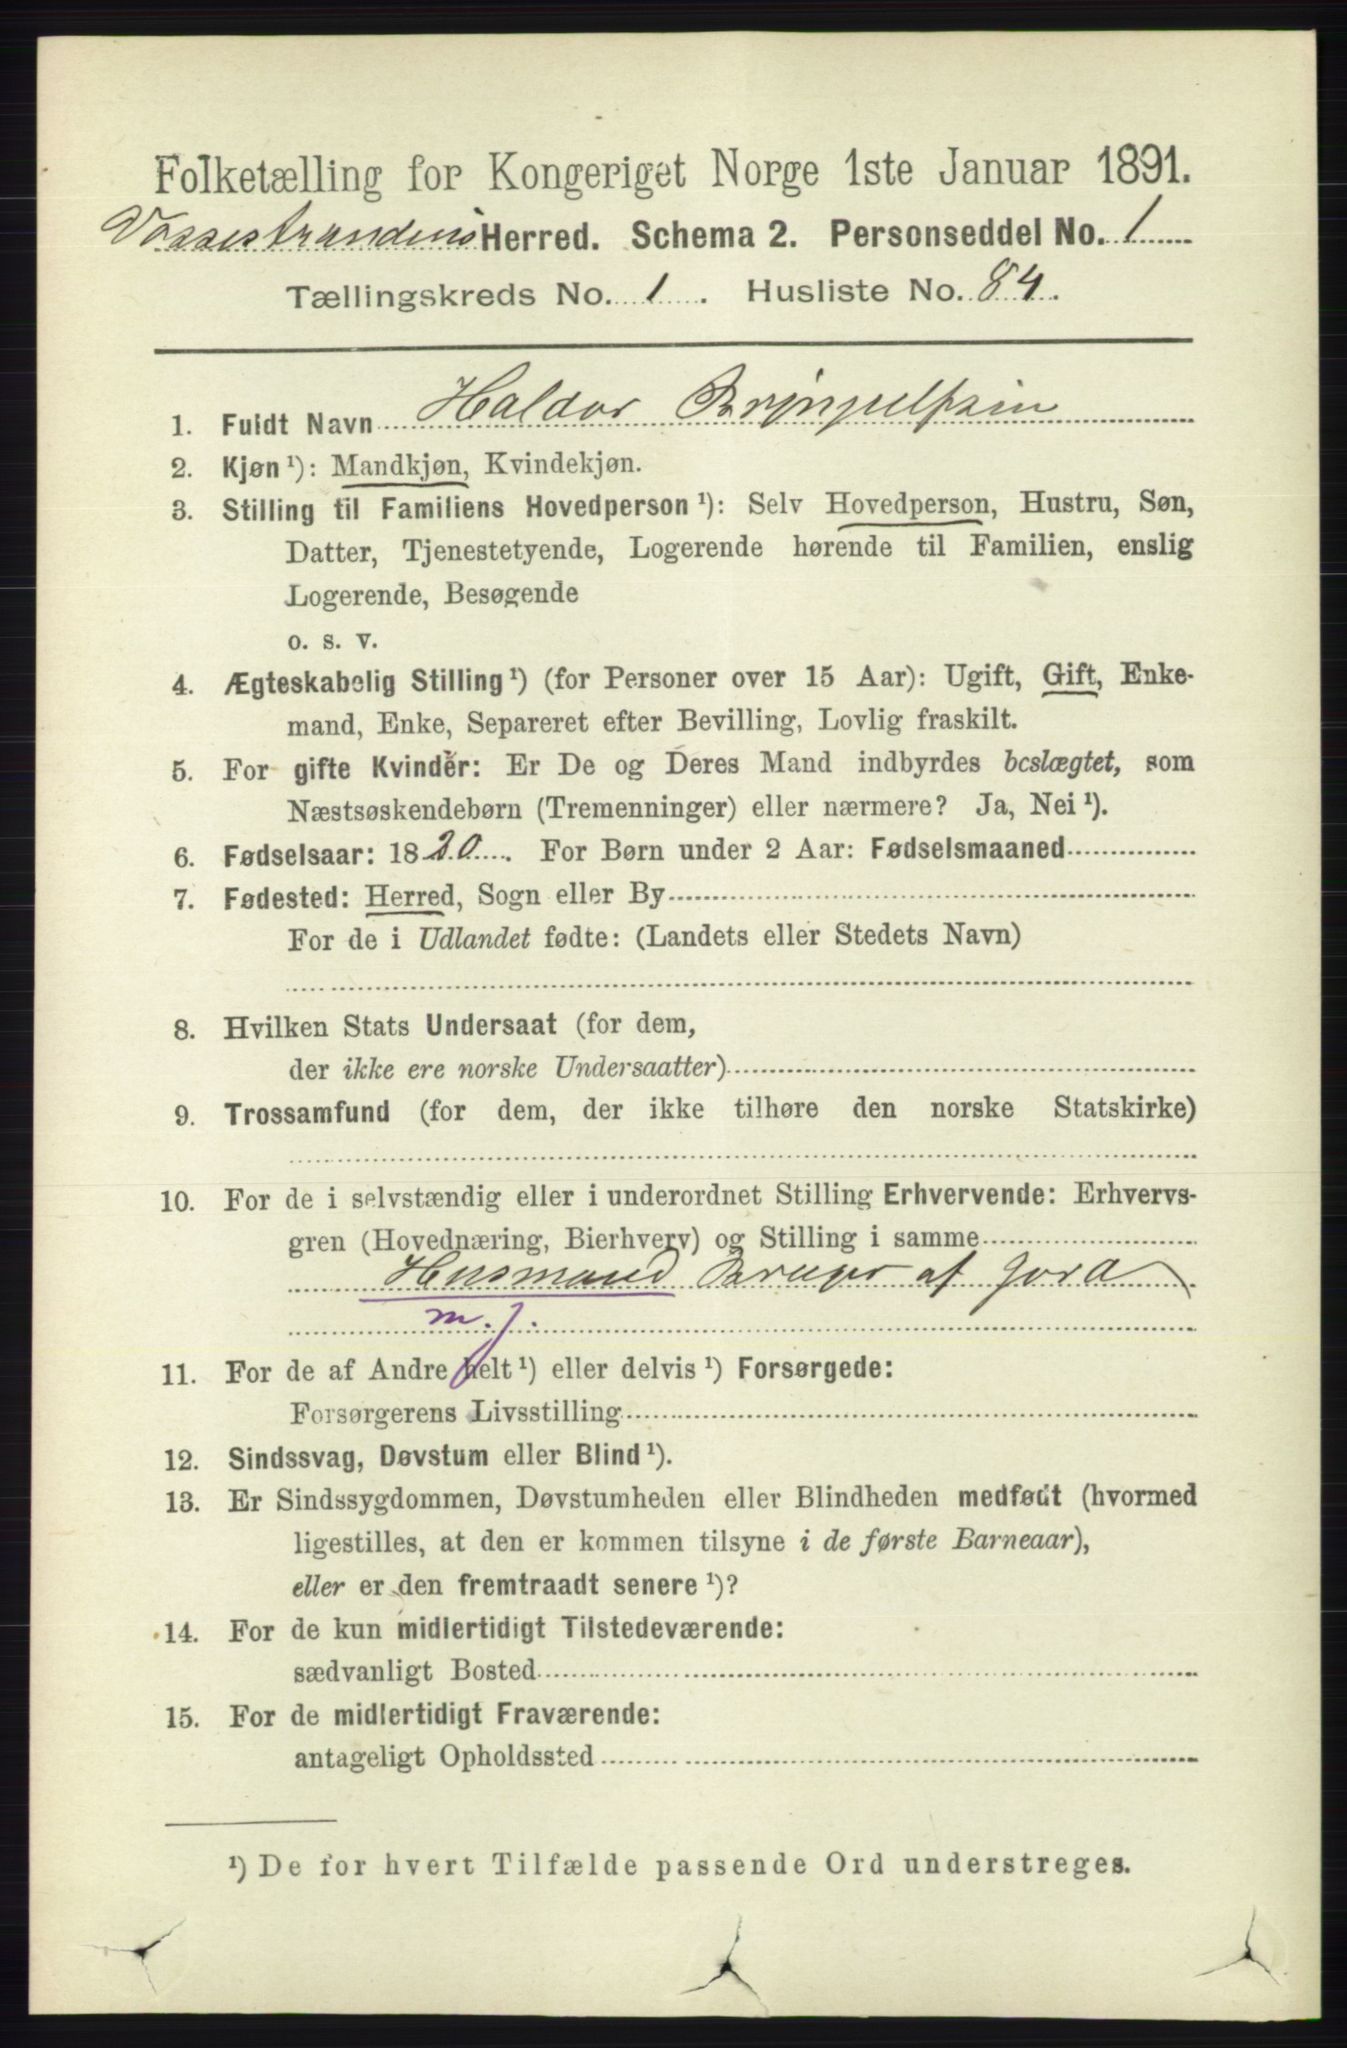 Folketælling for Kongeriget Norge 1ste Januar 1891.
Vossestrandens Herred. Schema 2. Personseddel No. 1
Tællingskreds No. 1. Husliste No. 84.
1. Fuldt Navn Haldor Brynjulfsen
2. Kjøn ¹): Mandkjøn, Kvindekjøn.
3. Stilling til Familiens Hovedperson ¹): Selv Hovedperson, Hustru, Søn,
Datter, Tjenestetyende, Logerende hørende til Familien, enslig
Logerende, Besøgende
o. s. v.
4. Ægteskabelig Stilling ¹) (for Personer over 15 Aar): Ugift, Gift, Enke-
mand, Enke, Separeret efter Bevilling, Lovlig fraskilt.
5. For gifte Kvinder: Er De og Deres Mand indbyrdes beslægtet, som
Næstsøskendebørn (Tremenninger) eller nærmere? Ja, Nei ¹).
6. Fødselsaar: 1820. For Børn under 2 Aar: Fødselsmaaned
7. Fødested: Herred, Sogn eller By
For de i Udlandet fødte: (Landets eller Stedets Navn)
8. Hvilken Stats Undersaat (for dem,
der ikke ere norske Undersaatter)
9. Trossamfund (for dem, der ikke tilhøre den norske Statskirke)
10. For de i selvstændig eller i underordnet Stilling Erhvervende: Erhvervs-
gren (Hovednæring, Bierhverv) og Stilling i samme
Husmand Bruger af Jord
m. j.
11. For de af Andre helt ¹) eller delvis ¹) Forsørgede:
Forsørgerens Livsstilling
12. Sindssvag, Døvstum eller Blind ¹).
13. Er Sindssygdommen, Døvstumheden eller Blindheden medfødt (hvormed
ligestilles, at den er kommen tilsyne i de første Barneaar),
eller er den fremtraadt senere ¹)?
14. For de kun midlertidigt Tilstedeværende:
sædvanligt Bosted
15. For de midlertidigt Fraværende:
antageligt Opholdssted
¹) De for hvert Tilfælde passende Ord understreges.